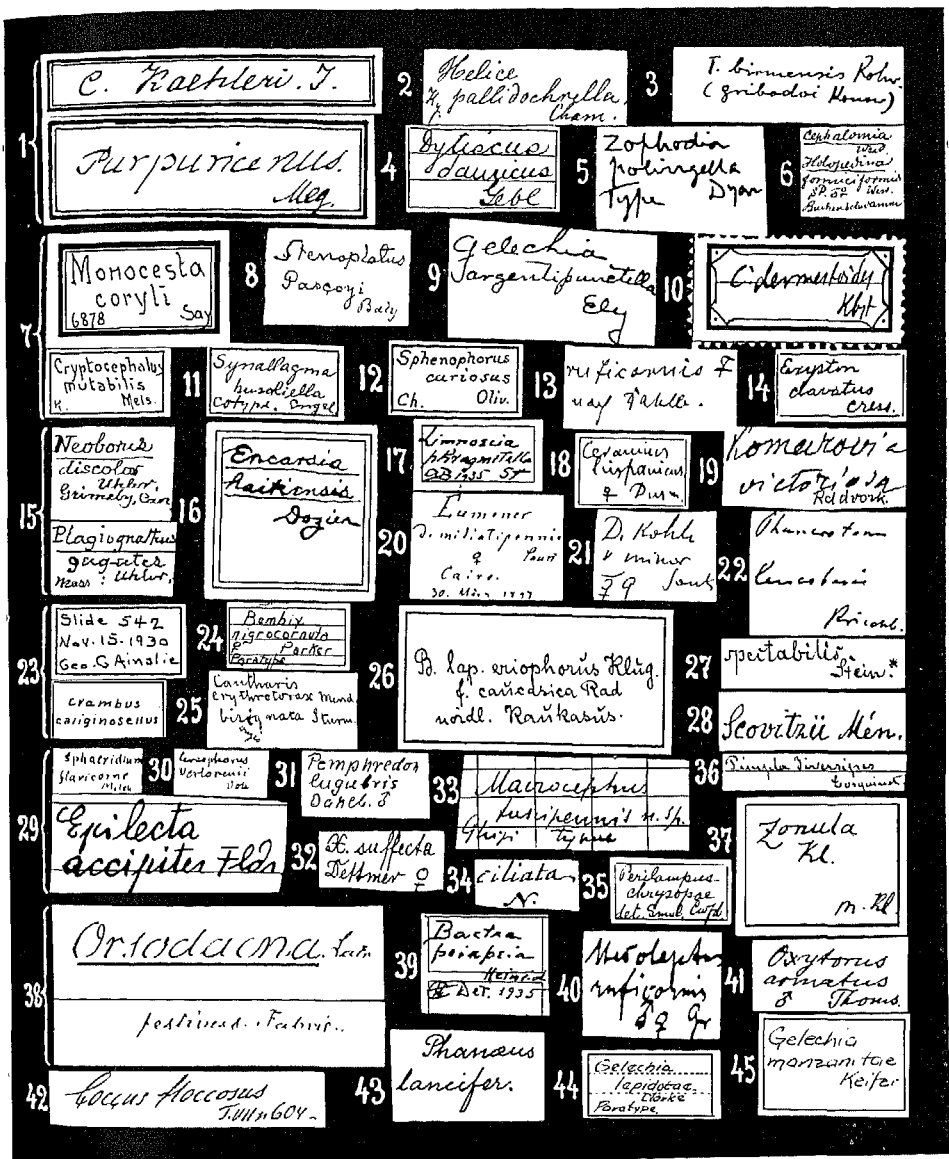 1
C. Kaehleri. J.
Purpuricenus.
Meg.
2
Helice
pallidochrella.
Cham.
3
T. birmensis Rohw.
(gribodoi Konow)
4
Dytiscus
dauricus
Gebl
5
Zophodia
polingella
Type Dyar
6
Cephalomia
West.
Holopedina
formiciformis
West.
7
Monocesta
coryli
6878 Say
Cryptocephalus
mutabilis
K. Mels.
8
Stenoplatus
Pascoyi
Baly
9
Gelechia
sargentipunctella
Ely
10
C. dermestoides
Kbyt
11
Synallagma
busckiella
Cotype. Engel
12
Sphenophorus
curiosus
Ch. Oliv.
13
ruficornis ♀
14
Eryston
clavatus
Cress.
15
Neoborus
discolor
Uhler.
Grimsby, Can
Plagiognathus
gagates
Mass: Uhler.
16
Encarsia
haitiensis
Dozier
17
Limnoecia
phragmitella
1935 St
18
Ceramius
hispanicus
♀ Dusm.
19
Komarovia
victoriosa
Radvork.
20
Eumenes
dimidiatipennis
♀ Sauss
Cairo.
21
D. Kohli
v minor
22
23
Slide 542
Nov. 15. 1930
Geo. G Ainslie
crambus
caliginosellus
24
Bembix
nigrocornuta
♀ Parker
Paratype
25
Cantharis
erythrotorax Mund
Sturm.
26
B. lap. eriophorus Klug.
f. caucasica Rad
nördl. Kaukasus.
27
spectabilis
Stein.*
28
Scovitzii Mén.
29
Sphaeridium
flavicorne
Epilecta
accipiter Fldr
30
31
Pemphredon
lugubris
Dahlb. ♂
32
X. suffecta
Dettmer ♀
33
Macrocephus
fuscipennis n. sp.
typus
34
ciliata
N.
35
Perilampus
chrysopae
det. Crwfd.
36
Pimpla diversipes
37
Zonula
Kl.
m. Kl
38
Orsodacna. Latr.
Fabric.
39
Bactra
Heinrich
Det. 1935
40
Mesoleptus
ruficornis
♂ ♀ Gr
41
Oxytorus
armatus
♂ Thoms.
42
Coccus floccosus
43
Phanaeus
lancifer.
44
Gelechia
lepidotae
Clarke
Paratype
45
Gelechia
manzanitae
Keifer